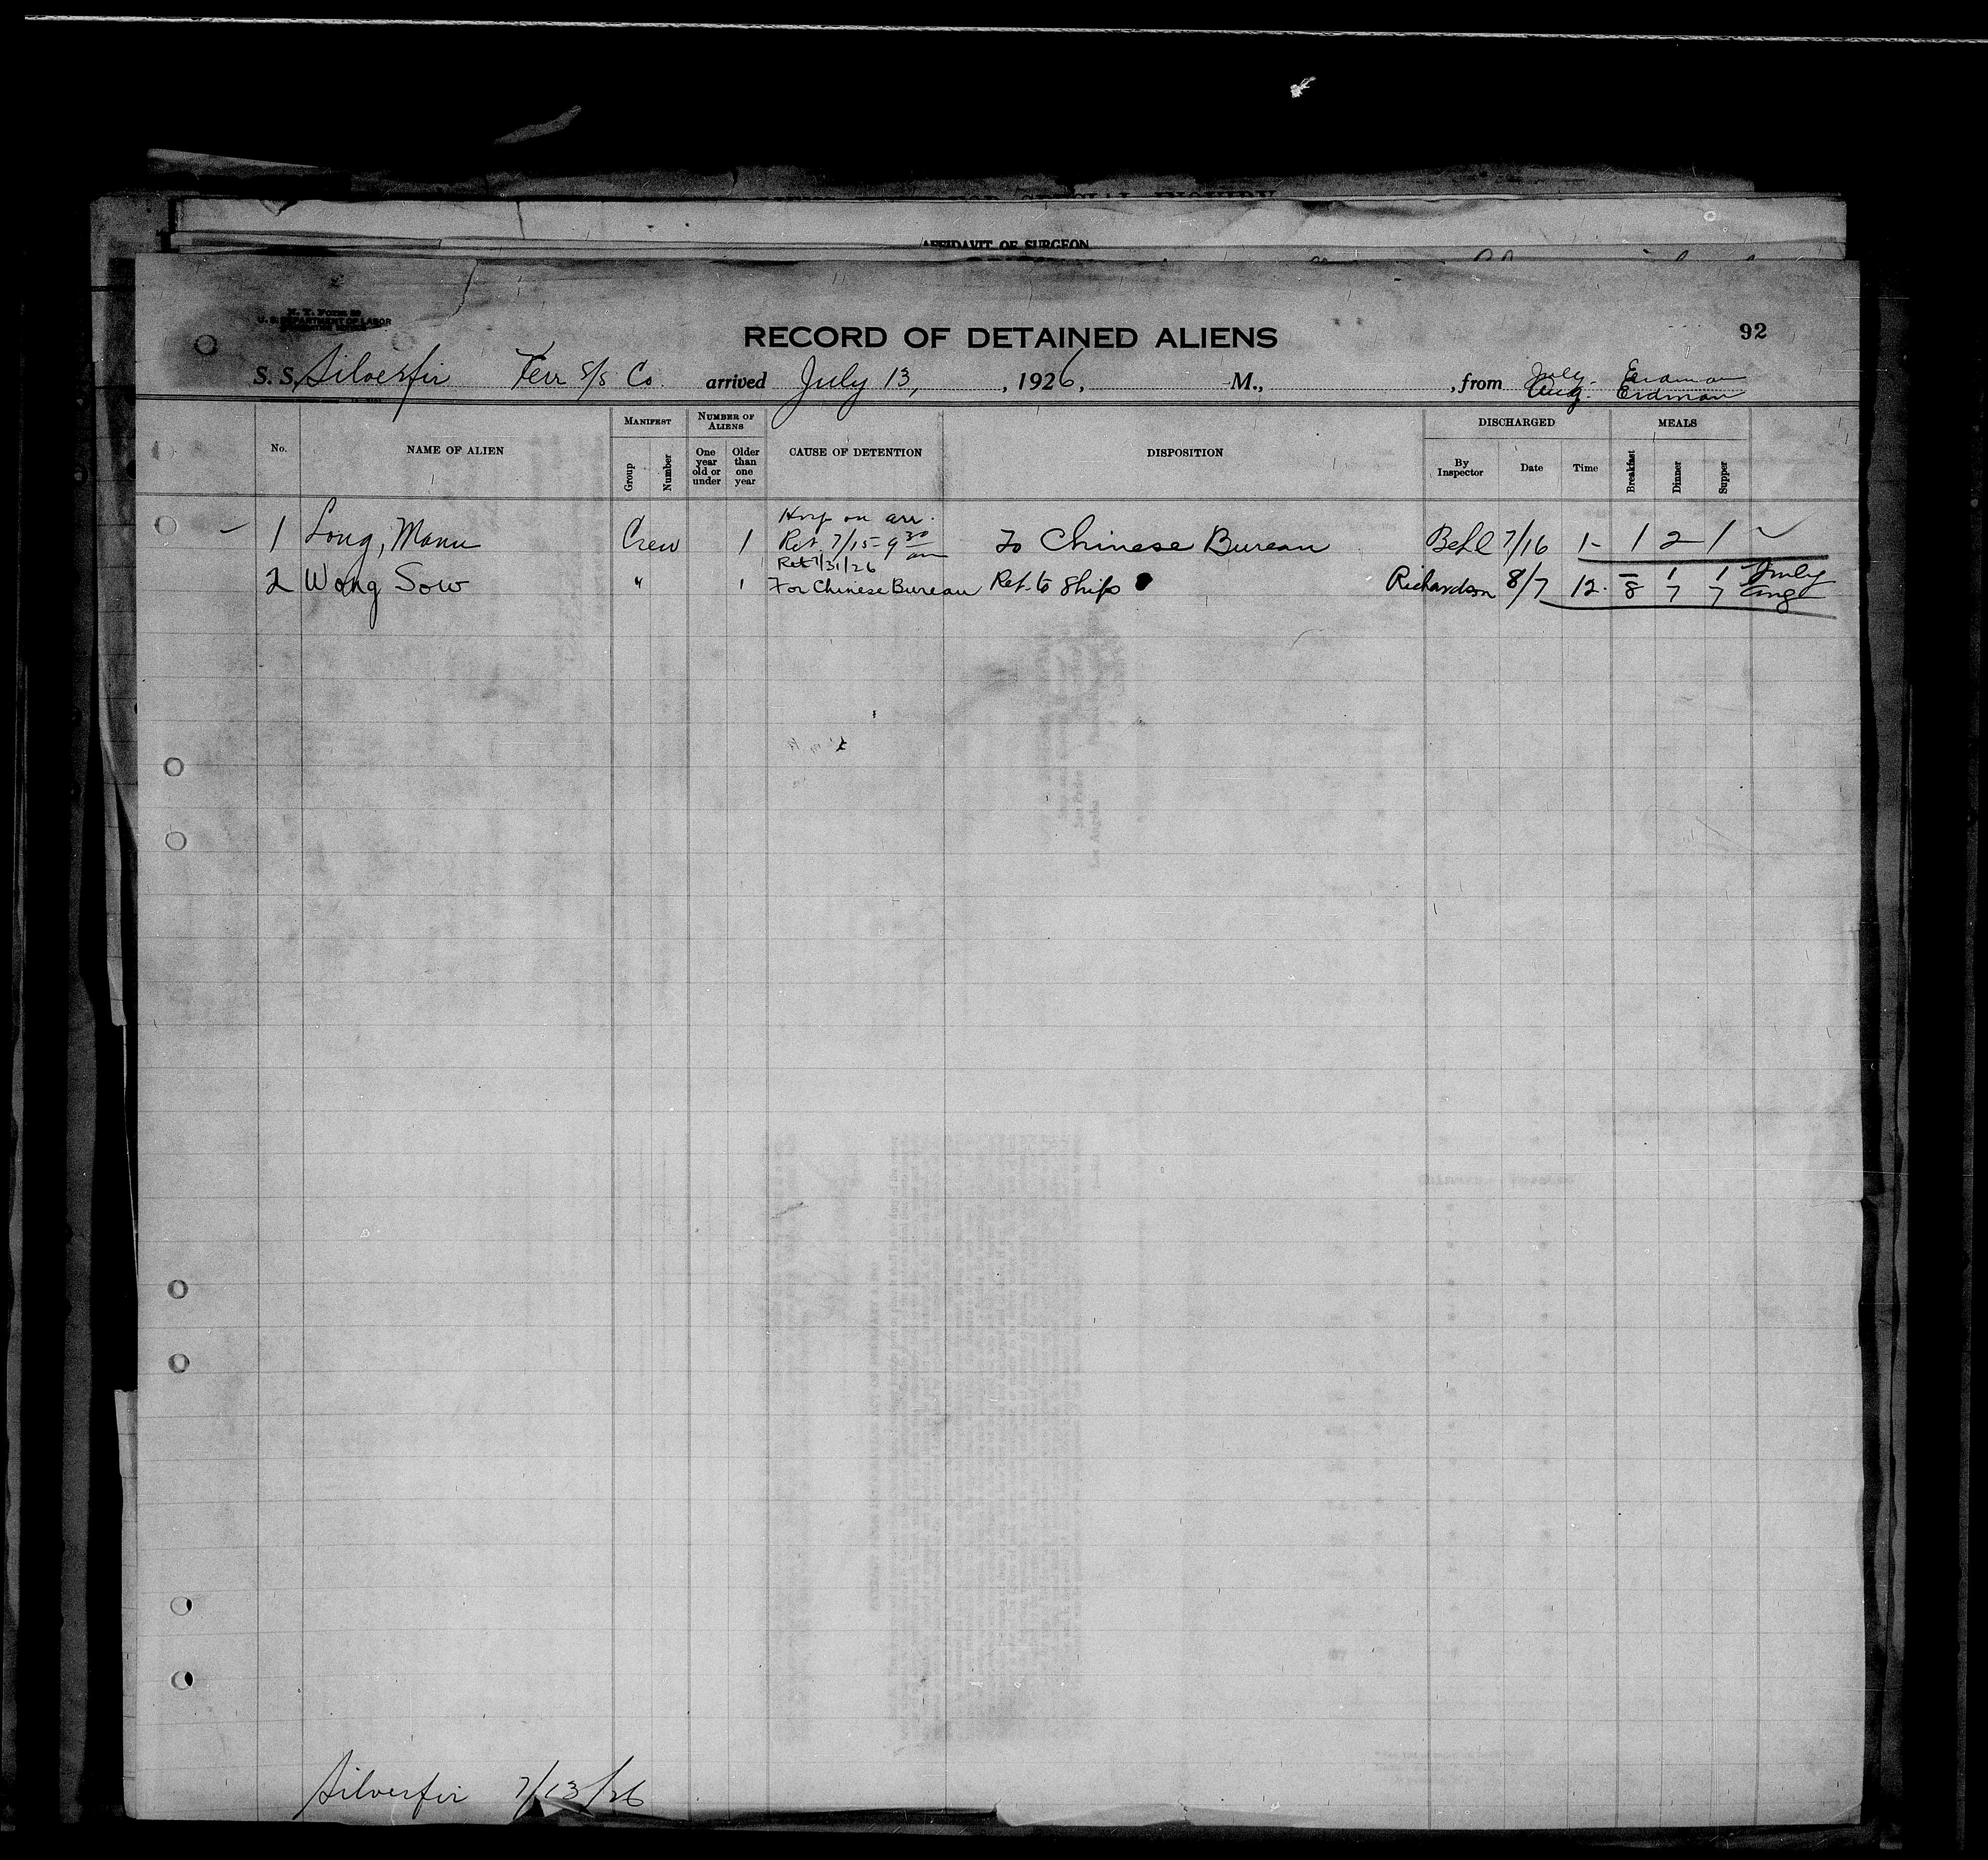 AFFIDAVIT OF SURGEON
U. S. DEPARTMENT OF LABOR
RECORD OF DETAINED ALIENS
92
S. S. Silverfir Kerr S/S Co. arrived July 13, , 1926, M., , from July. Erdman
Aug. Erdman
No.
NAME OF ALIEN
MANIFEST
Group
Number
NUMBER OF ALIENS
One year old or under
Older than one year
CAUSE OF DETENTION
DISPOSITION
DISCHARGED
By Inspector
Date
Time
MEALS
Breakfast
Dinner
Supper
Hosp on arr.
1 Long, Mann Crew 1 Ret. 7/15- 9 30 am To Chinese Bureau 7/16 1- 1 2 1 ✓
Ret 7/31/26
2 Wong Sow " 1 For Chinese Bureau Ret. to Ship Richardson 8/7 12. - 1 1 July
8 7 7 Aug
Silverfir 7/13/26